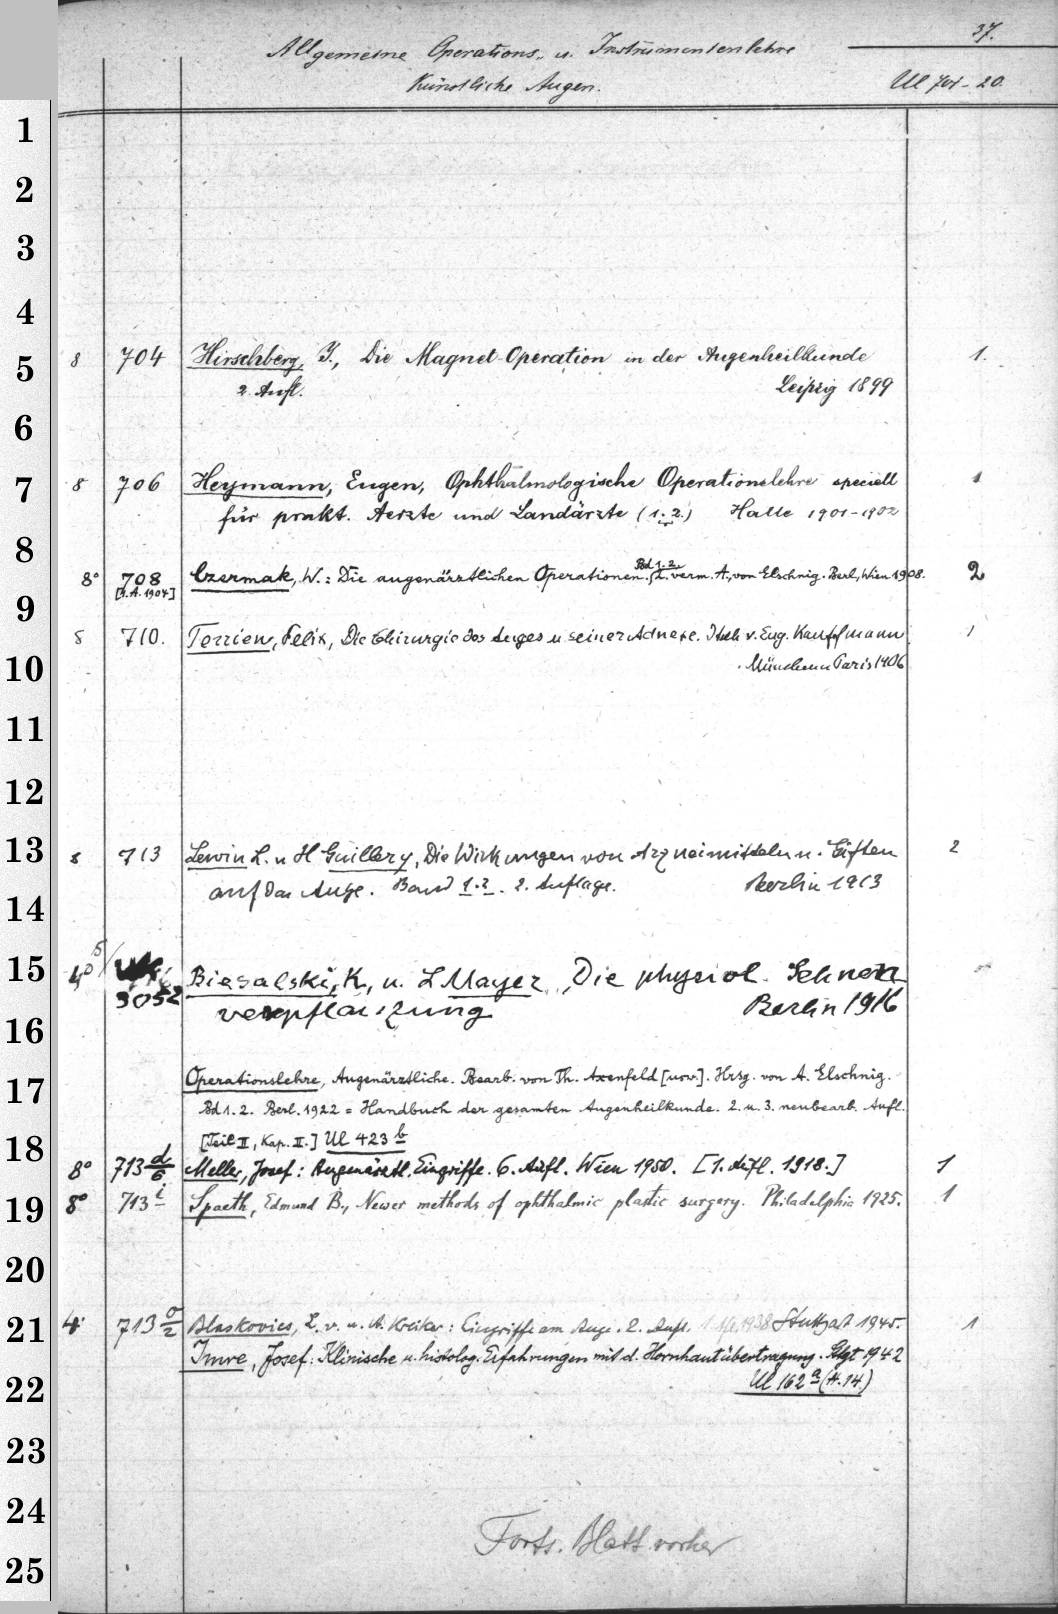 37.
Allgemeine Operations- u. Instrumentenlehre
Künstliche Augen. Ul 701-20.
1
2
3
4
5
6
7
8
9
10
11
12
13
14
15
16
17
18
19
20
21
22
23
24
25
8 704 Hirschberg, J., Die Magnet-Operation in der Augenheilkunde 1.
2. Aufl. Leipzig 1899
8 706 Heymann, Eugen, Ophthalmologische Operationslehre speciell 1
für prakt. Aerzte und Landärzte (1.2.) Halle 1901-1902
Bd 1.2.
8° 708 Czermak, W.: Die augenärztlichen Operationen. 2. verm. A., von Elschnig. Berl., Wien 1908. 2
[1.A.1904]
8 710. Terrien, Felix, Die Chirurgie des Auges u seiner Adnexe. v. Eug. Kauffmann 1
München u Paris 1906
8 713 Lewin L. u H Guillery, Die Wirkungen von Arzneimitteln u. Giften 2
auf das Auge. Band 1.2. 2. Auflage. Berlin 1913
4° Biesalski, K., u. L Mayer, Die physiol. Sehnen
3052 verpflanzung Berlin 1916
Operationslehre, Augenärztliche. Bearb. von Th. Axenfeld [usw.]. Hrsg. von A. Elschnig.
Bd 1. 2. Berl. 1922 = Handbuch der gesamten Augenheilkunde. 2. u. 3. neubearb. Aufl.
[Teil II, Kap. II.] Ul 423 b
8° 713 d/6 Meller, Josef: Augenärztl. Eingriffe. 6. Aufl. Wien 1950. [1. Aufl. 1918.] 1
8° 713 i Spaeth, Edmund B., Newer methods of ophthalmic plastic surgery. Philadelphia 1925. 1
4° 713 o/2 Blaskovics, L. v. u. A. Kreiker: Eingriffe am Auge. 2. Aufl. 1938 Stuttgart 1945. 1
Imre, Josef: Klinische u. histolog. Erfahrungen mit d. Hornhautübertragung. Stgt 1942
Ul 162 a (H. 14.)
Forts. Blatt vorher